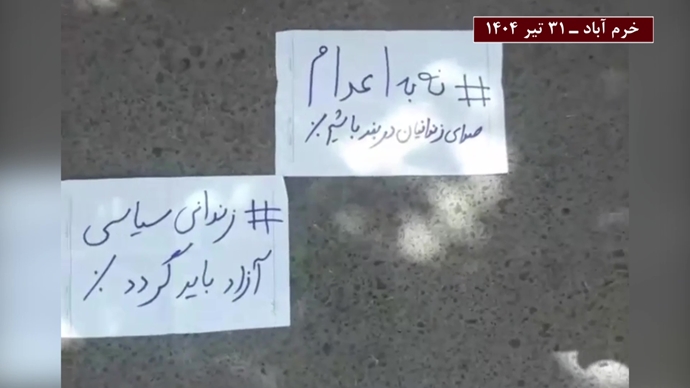 خرم آباد ـ ۳۱ تیر ۱۴۰۴
#نه به اعدام
صدای زندانیان در بند باشیم٪
#زندانی سیاسی
آزاد باید گردد٪